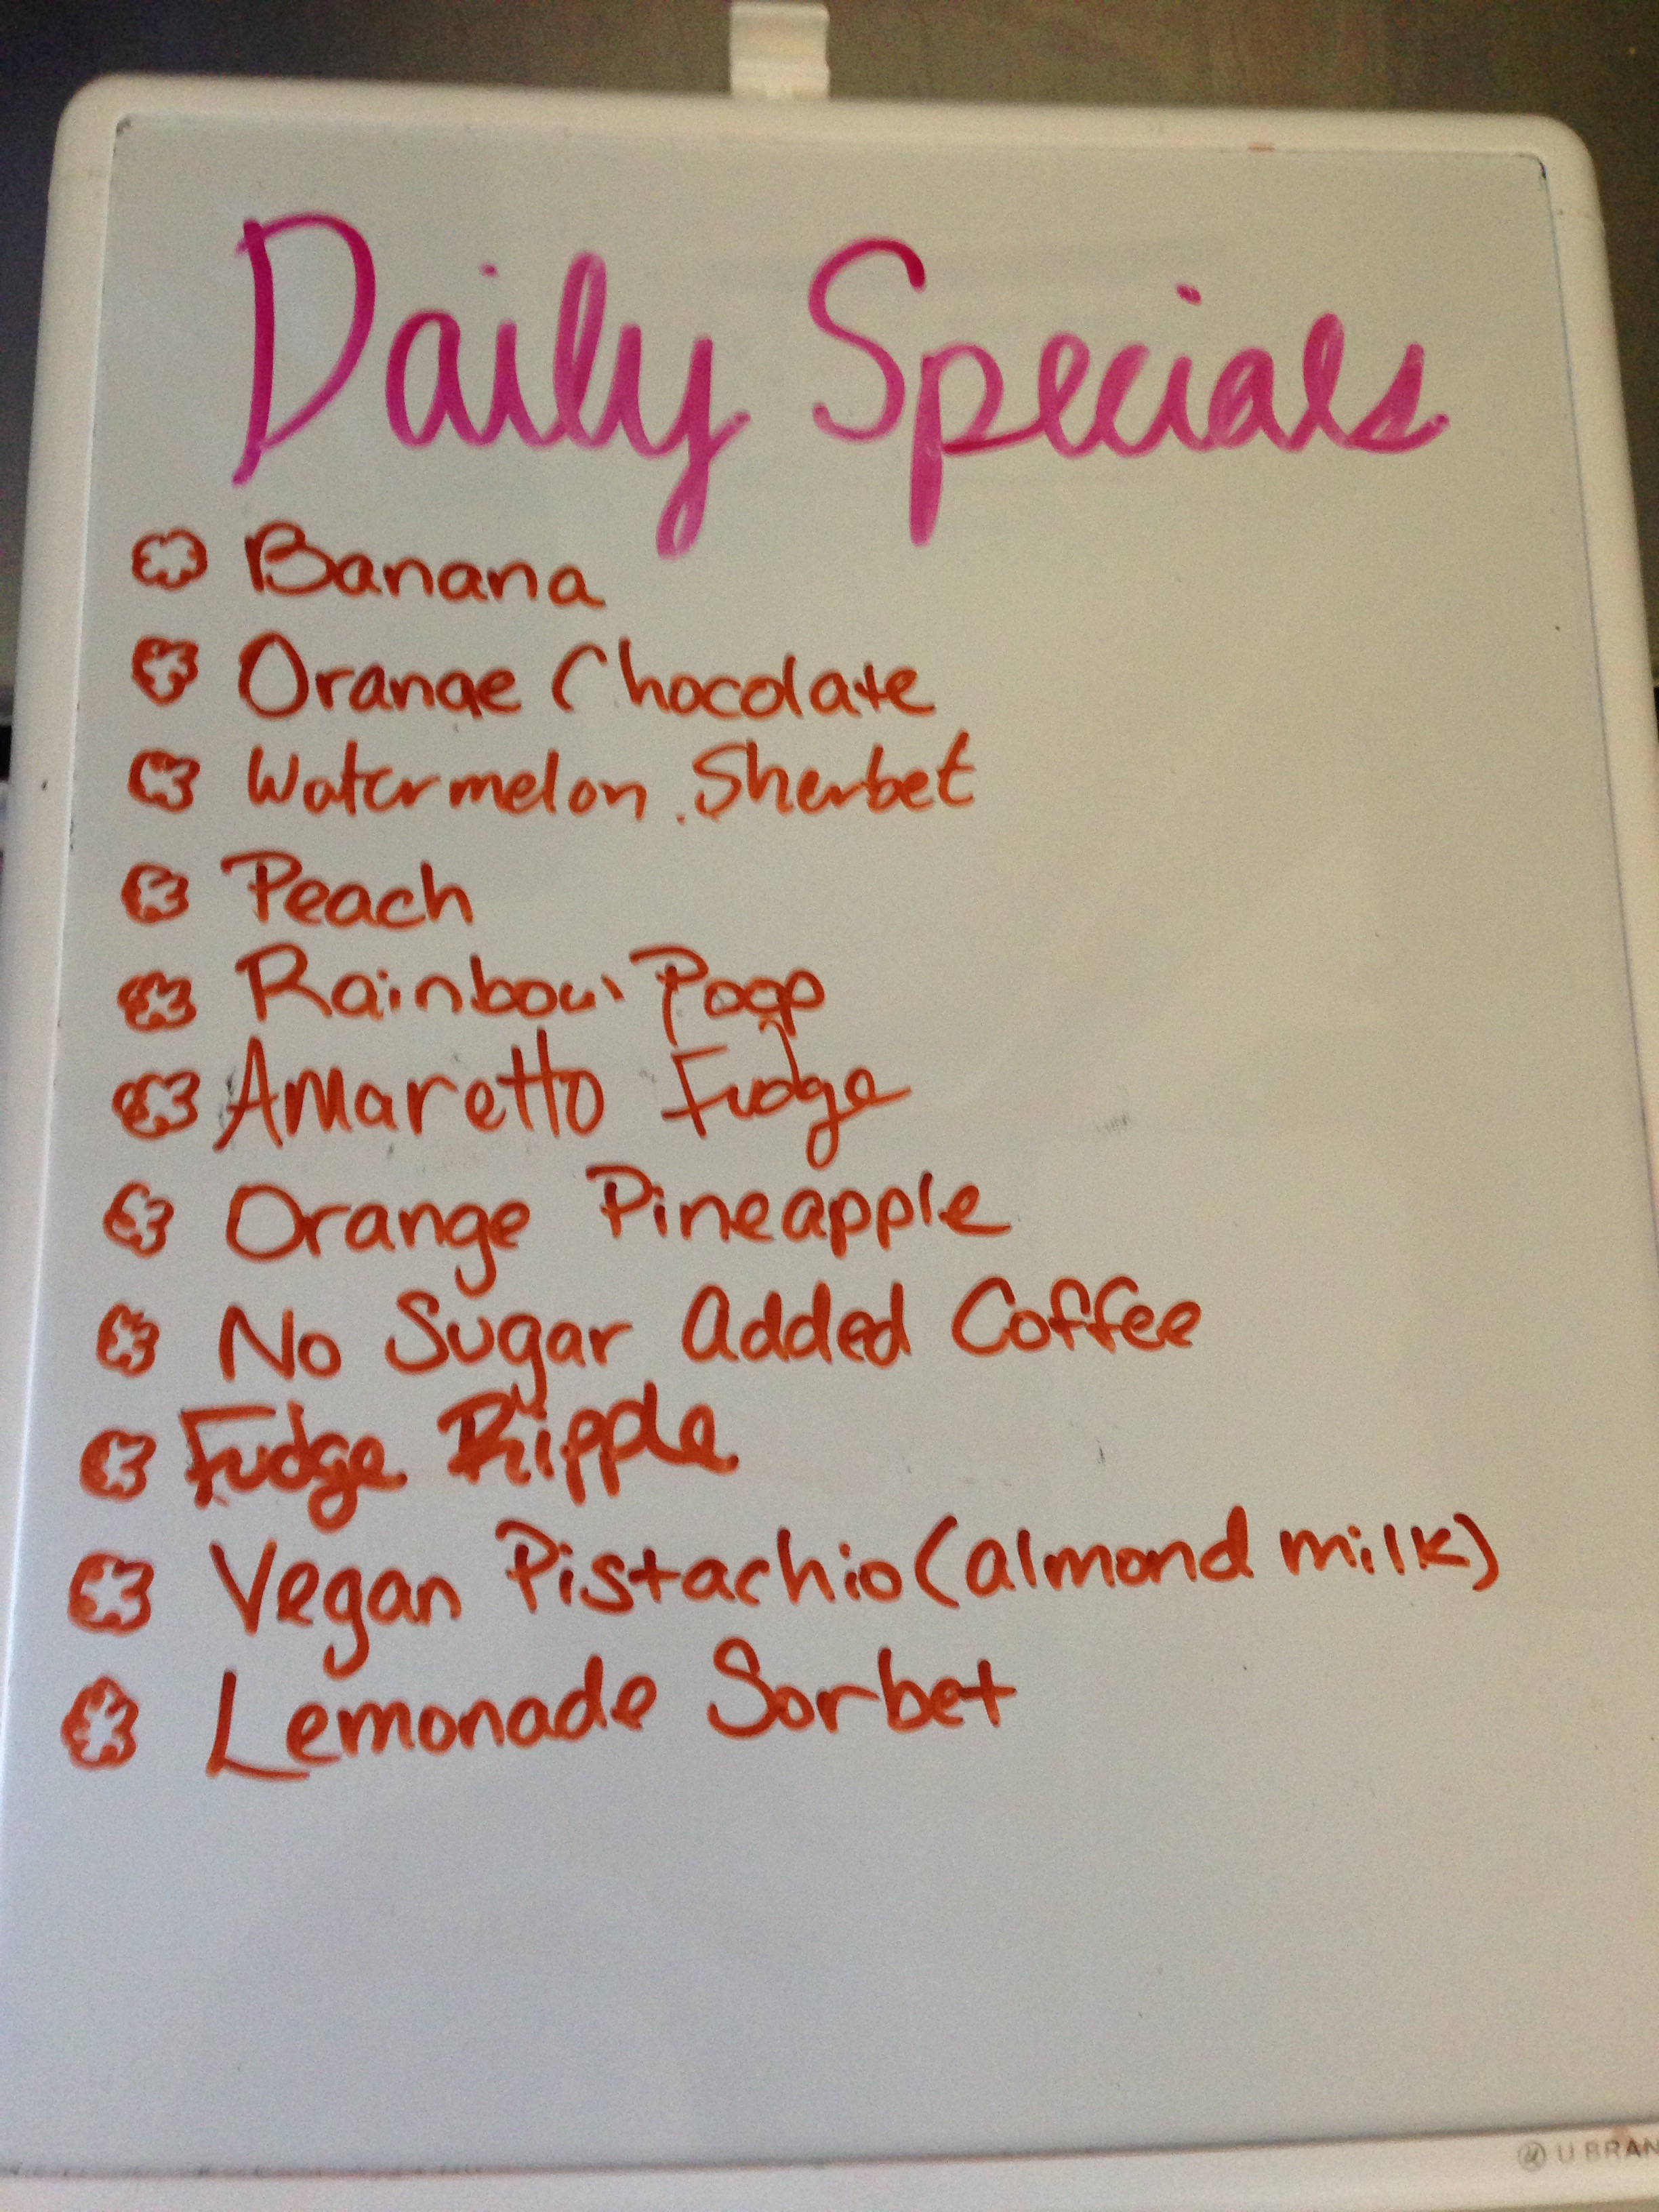 Daily Specials
Banana
Orange Chocolate
Watermelon Sherbet
Peach
Rainbow Poop
Amaretto Fudge
Orange Pineapple
No Sugar Added Coffee
Fudge Ripple
Vegan Pistachio (almond milk)
Lemonade Sorbet
U BRAN